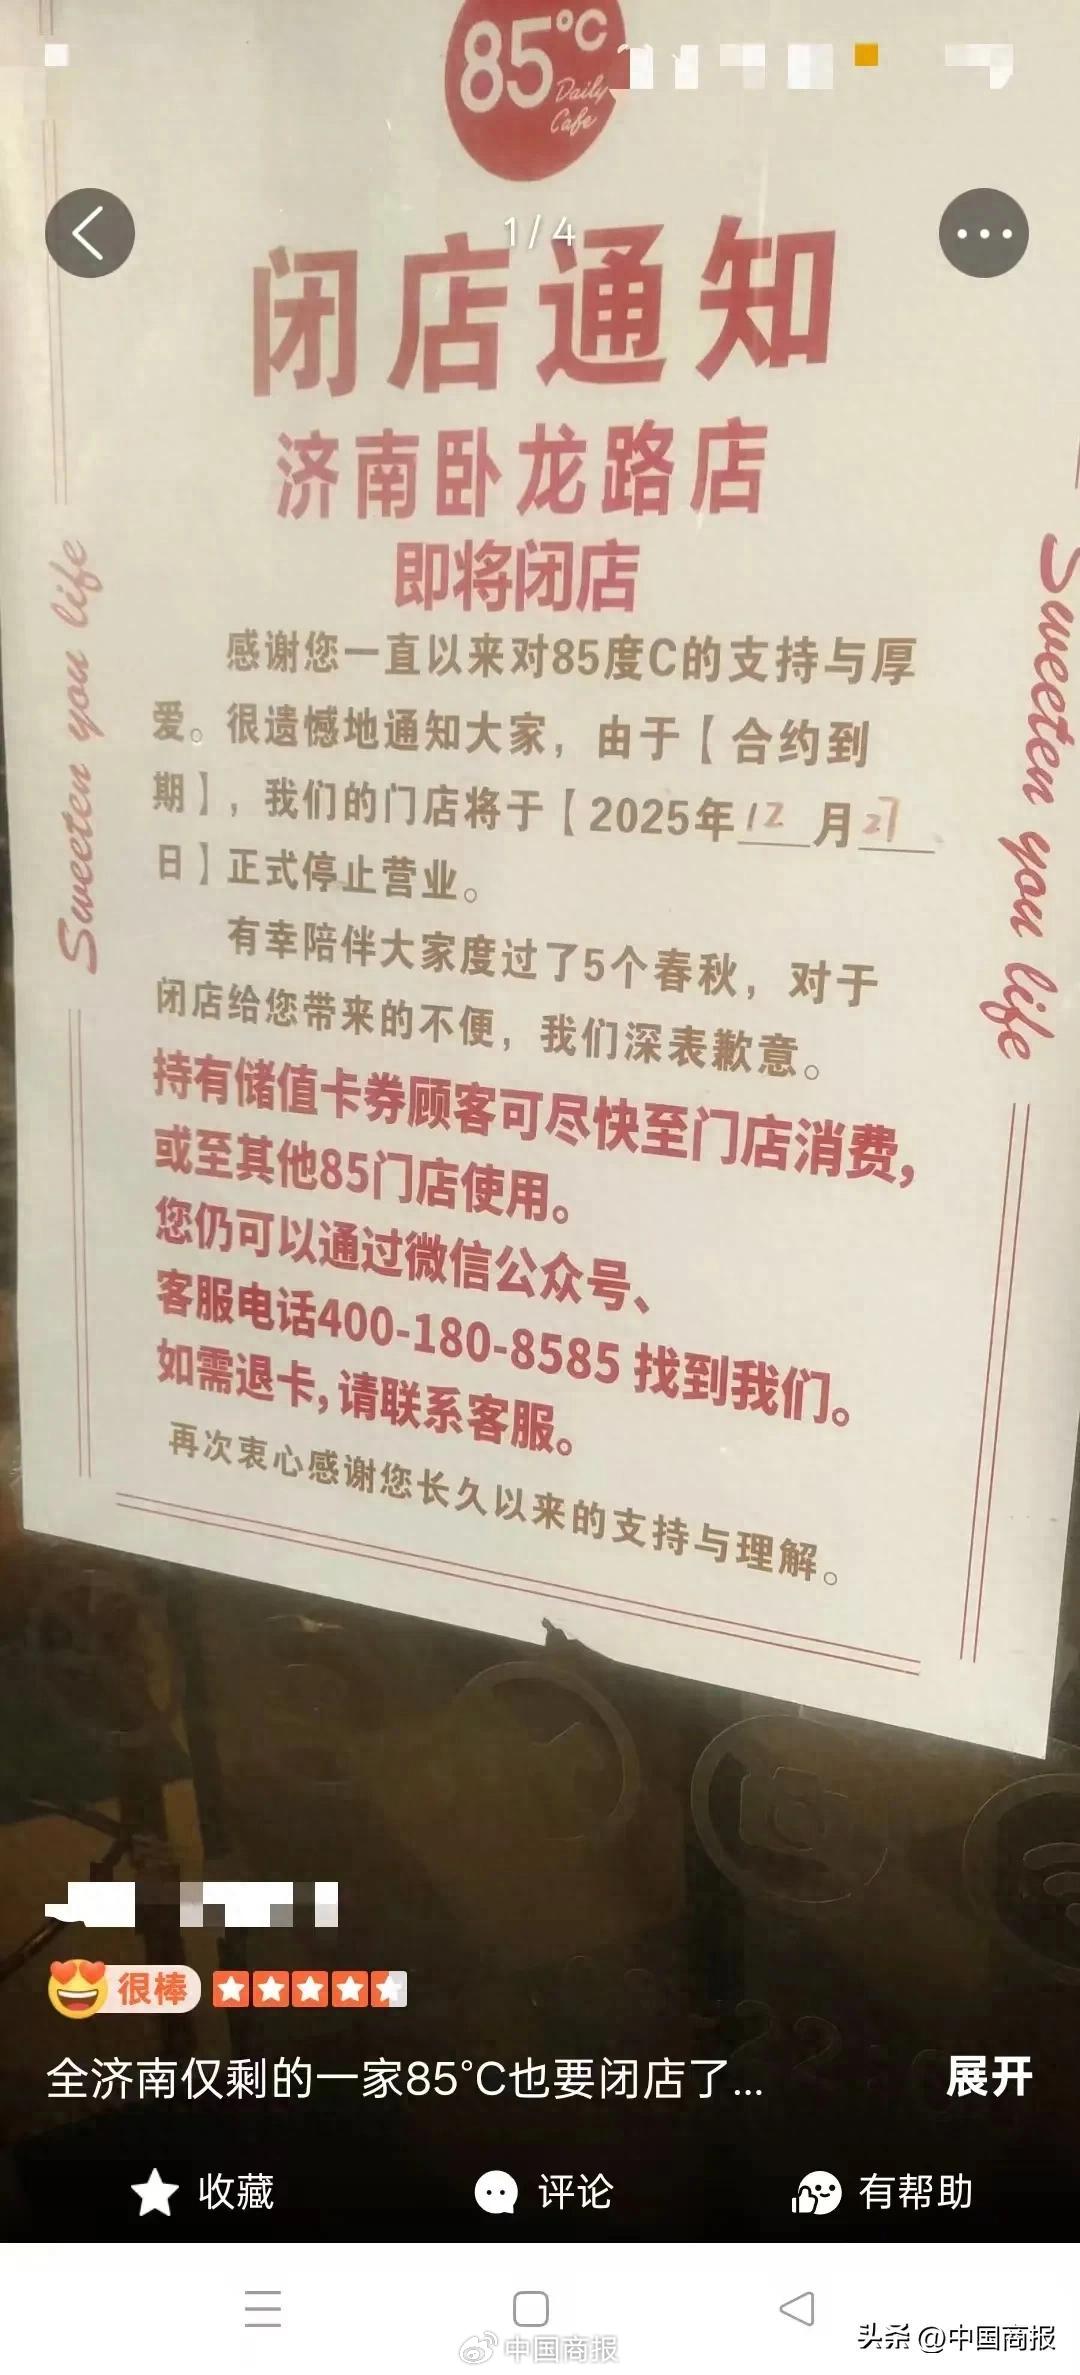 85°C
Daily
Cafe
1/4
闭店通知
济南卧龙路店
即将闭店
感谢您一直以来对85度C的支持与厚
爱。很遗憾地通知大家，由于【合约到
期】，我们的门店将于【2025年12月27
日】正式停止营业。
有幸陪伴大家度过了5个春秋，对于
闭店给您带来的不便，我们深表歉意。
持有储值卡券顾客可尽快至门店消费，
或至其他85门店使用。
您仍可以通过微信公众号、
客服电话400-180-8585 找到我们。
如需退卡，请联系客服。
再次衷心感谢您长久以来的支持与理解。
Sweeten you life
Sweeten you life
很棒
全济南仅剩的一家85°C也要闭店了...
展开
收藏
评论
有帮助
中国商报
头条 @中国商报